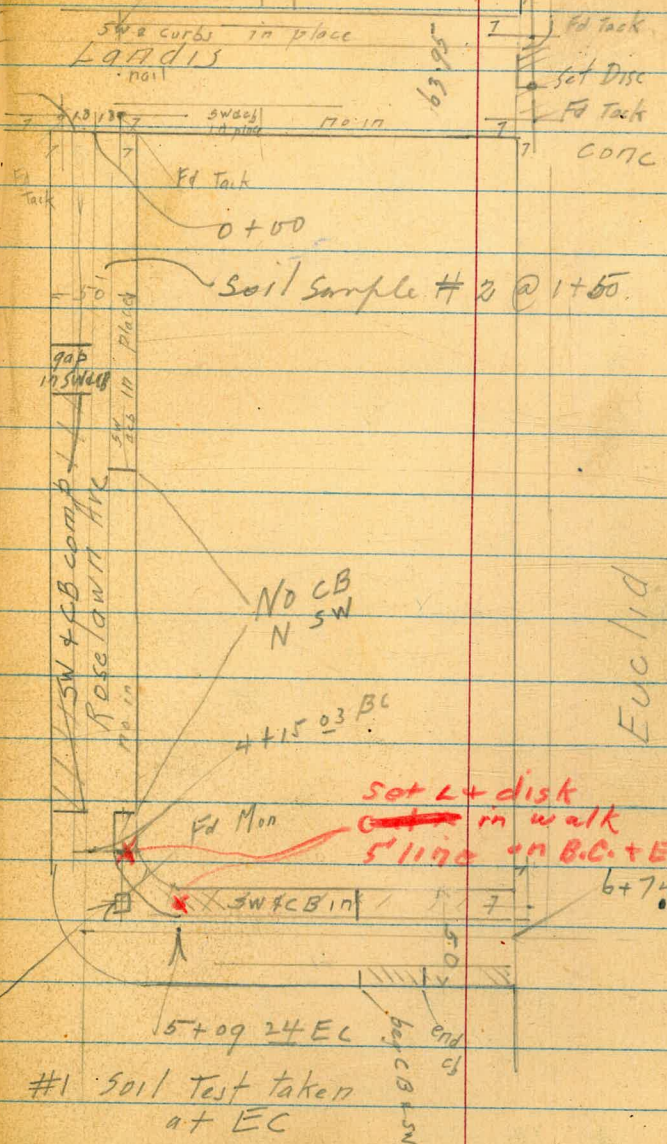 sw & curbs in place
Landis
nail
56.39
7
Fd Tack
Set Disc
Fd Tack
conc
7
7
18
18
sw & cb
in place
no in
7
7
7
7
Fd
Tack
Fd Tack
0+00
Soil Sample # 2 @ 1+50
50'
gap
in SW & CB
sw & cb in place
SW & CB comp
Roselawn Ave
no in
No CB
N SW
Euclid
4+15 03 BC
Fd Mon
Set L+ disk
in walk
5' line on B.C. + E
SW & CB in
7
6+74
50
5+09 24 EC
beg CB & SW
end
cb
#1 Soil Test taken
at EC